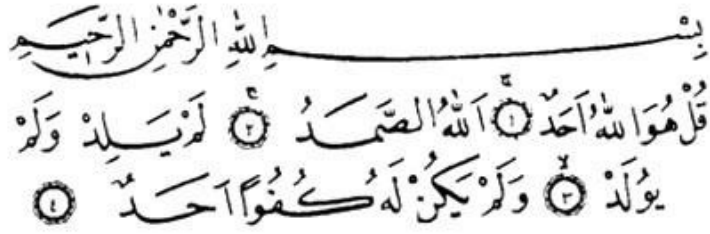 بِسْمِ اللهِ الرَّحْمٰنِ الرَّحِيمِ
قُلْ هُوَ اللهُ اَحَدٌ ۚ ﴿١﴾ اَللهُ الصَّمَدُ ۚ ﴿٢﴾ لَمْ يَلِدْ وَلَمْ
يُولَدْ ۙ ﴿٣﴾ وَلَمْ يَكُنْ لَهُ كُفُوًا اَحَدٌ ﴿٤﴾